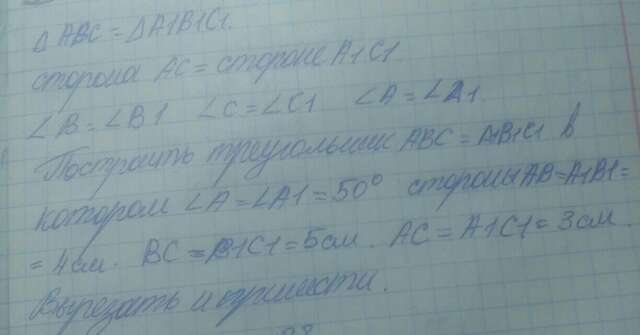 Δ ABC = Δ A1B1C1.
сторона AC = стороне A1C1
∠B = ∠B1 ∠C = ∠C1 ∠A = ∠A1.
Построить треугольник ABC = A1B1C1 в
котором ∠A = ∠A1 = 50° стороны AB = A1B1 =
= 4 см. BC = B1C1 = 5 см. AC = A1C1 = 3 см.
Вырезать и принести.